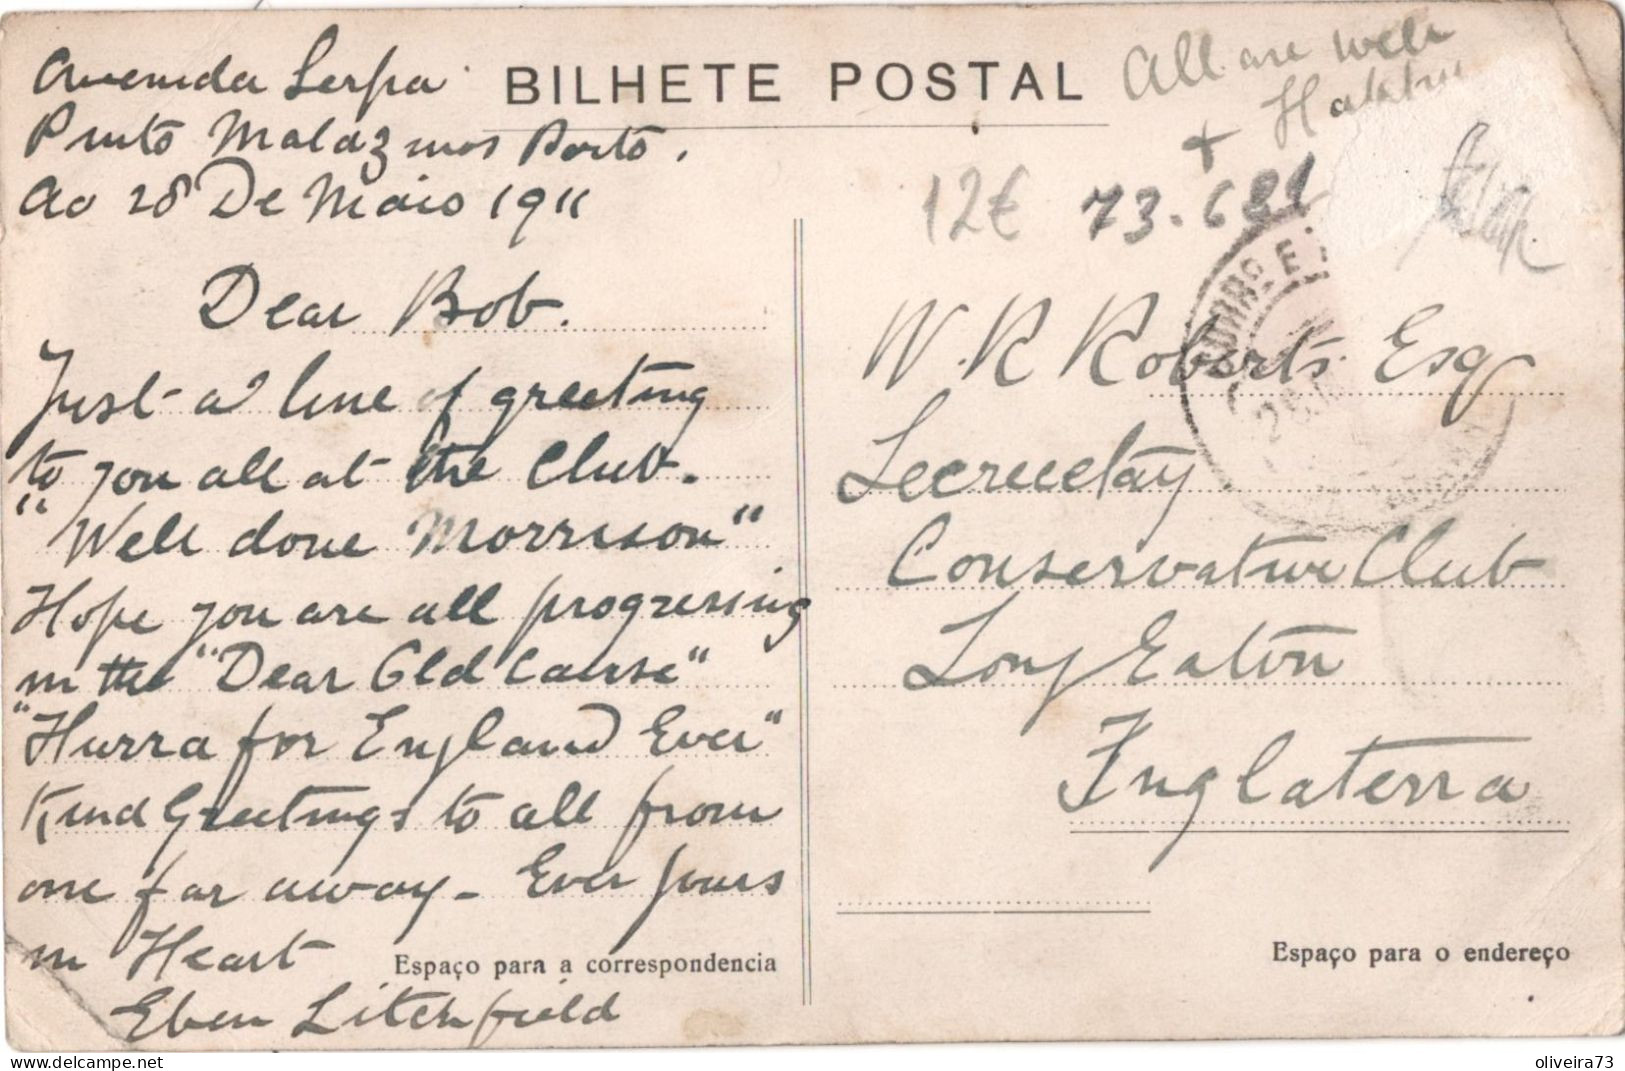 Avenida Serpa
Pinto Malazinos Porto.
Ao 28 De Maio 1911
Dear Bob.
Just a line of greeting
to you all at the Club.
"Well done Morrison"
Hope you are all progressing
in the "Dear Old Cause"
"Hurra for England Ever"
Kind Greetings to all from
one far away - Ever yours
in Heart
Eben Litchfield
Espaço para a correspondencia
BILHETE POSTAL
All are well
+ Happy
12€ 73.681
CORRO E
W. R Roberts. Esq
Secreetay
Conservative Club
Long Eaton
Inglaterra
Espaço para o endereço
delcampe.net
oliveira73